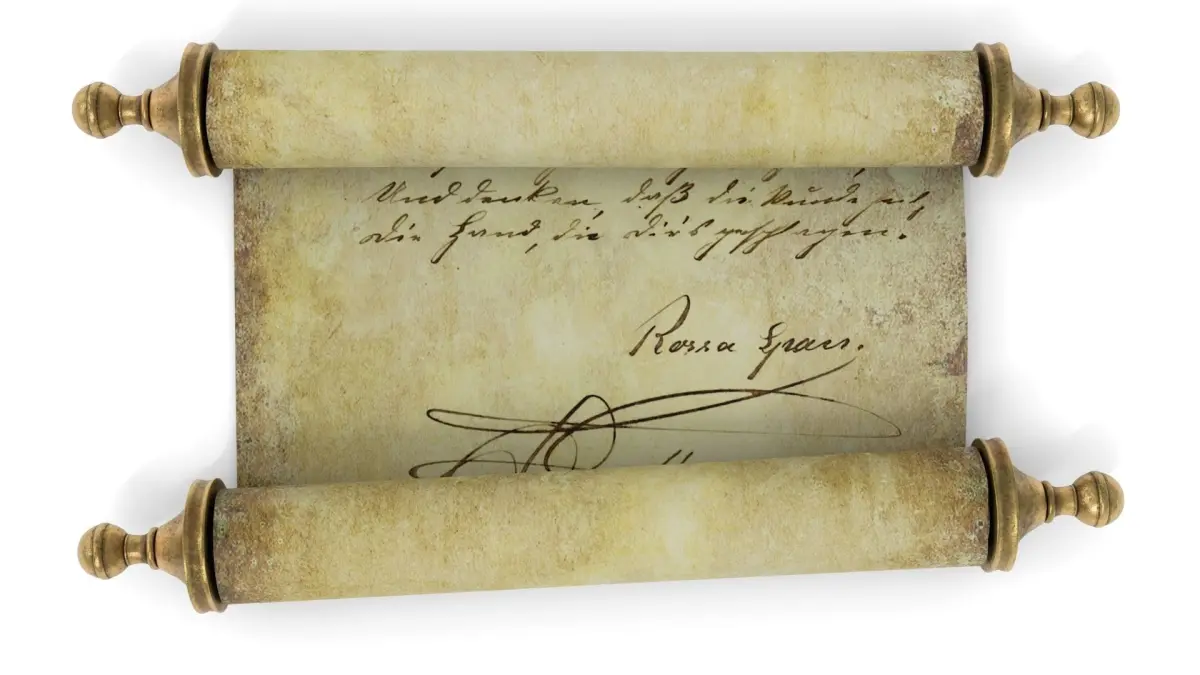 Und denken, daß die Wunde heil,
Die Hand, die dir's geschlagen.
Rossa